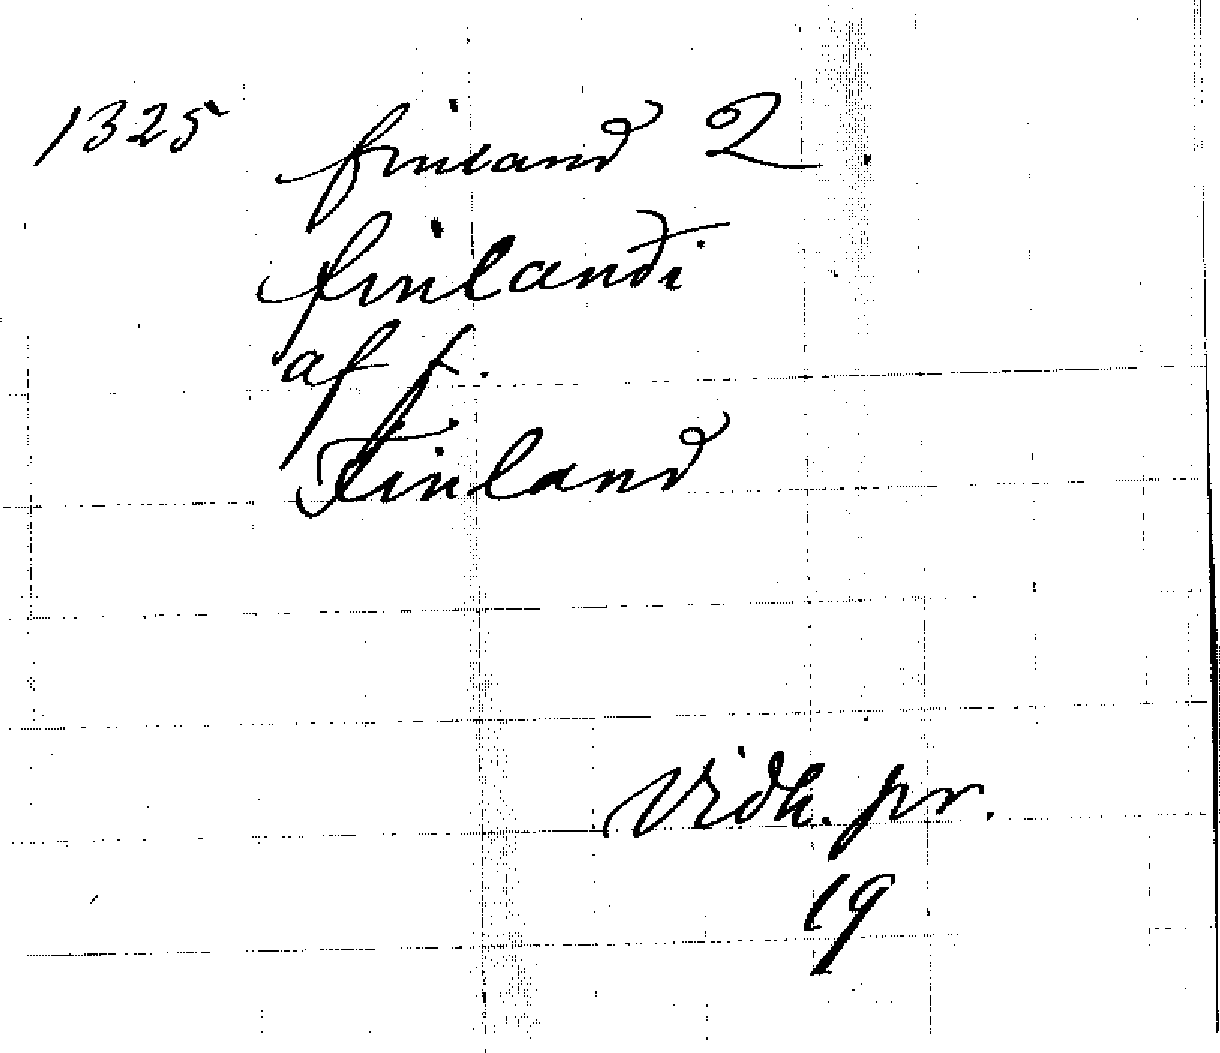 1325 finland 2
finlandi
af f.
Finland
Vidk. pr.
19